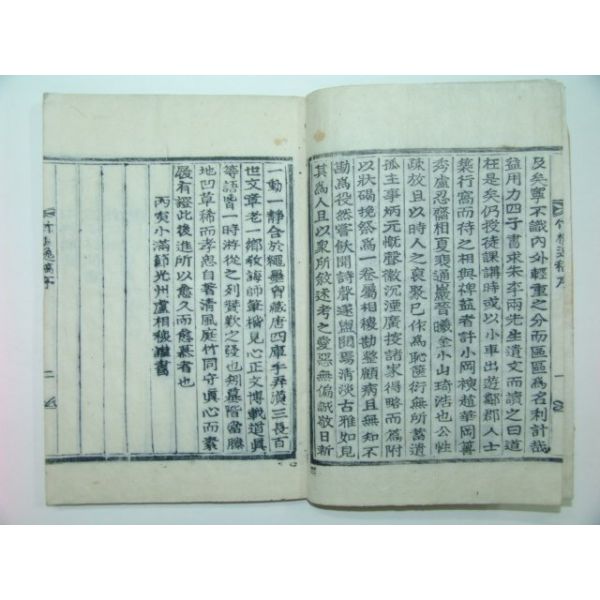 及矣寧不識內外輕重之分而區區爲名利計哉
益用力四子書求朱李兩先生遺文而讀之曰道
在是矣仍授徒課講時或以小車出遊鄰郡人士
築行窩而待之相與裨益者許小岡 趙華岡
秀盧忍齋相夏 通巖晉 金小山琦浩也公性
疎 且以時人之裒聚已作爲恥篋衍無所蓄遺
孤主事炳元慨聲徽沉湮廣搜諸家得略而爲附
以狀碣挽祭爲一卷屬相稷勘整顧病且無知不
勘爲役然嘗飫聞詩聲逐 閱 淸淡古雅如見
其爲人且以衆所敍述考之 無偏 敬日新
一動一靜合於繩墨 藏唐四庫手弄漢三長百
世文章老一鄕敎誨師筆楷見心正文博載道眞
等語皆一時游從之列贊歎之發也 當 勝
地凹草稀而孝思自著淸風庭竹同守眞心而素
履有證此後進所以愈久而愈慕者也
丙寅小滿節光州盧相稷謹書